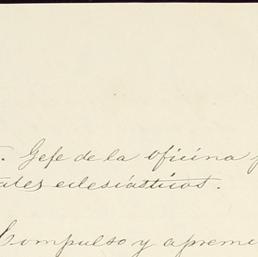 . Gefe de la oficina p
ales eclesiásticos.
Compulso y apremi